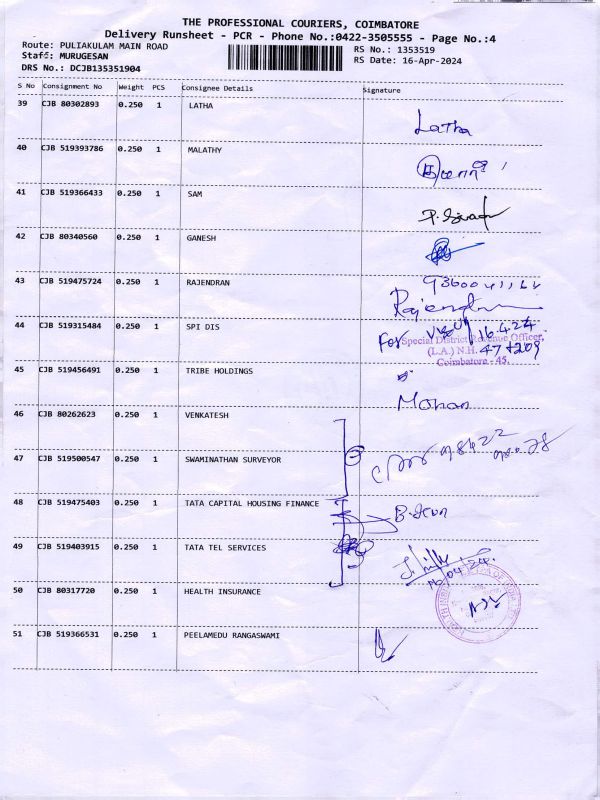 THE PROFESSIONAL COURIERS, COIMBATORE
Delivery Runsheet - PCR - Phone No.:0422-3505555 - Page No.:4
Route: PULIAKULAM MAIN ROAD RS No.: 1353519
Staff: MURUGESAN RS Date: 16-Apr-2024
DRS No.: DCJB135351904
S No Consignment No Weight PCS Consignee Details Signature
39 CJB 80302893 0.250 1 LATHA Latha
40 CJB 519393786 0.250 1 MALATHY
41 CJB 519366433 0.250 1 SAM
42 CJB 80340560 0.250 1 GANESH
43 CJB 519475724 0.250 1 RAJENDRAN Rajendran
44 CJB 519315484 0.250 1 SPI DIS For 16.4.24
Special District Revenue Officer,
(L.A.) N.H. 47 + 209
Coimbatore - 45.
45 CJB 519456491 0.250 1 TRIBE HOLDINGS Mohan
46 CJB 80262623 0.250 1 VENKATESH
47 CJB 519500547 0.250 1 SWAMINATHAN SURVEYOR
48 CJB 519475403 0.250 1 TATA CAPITAL HOUSING FINANCE
49 CJB 519403915 0.250 1 TATA TEL SERVICES 16/04/24.
50 CJB 80317720 0.250 1 HEALTH INSURANCE
51 CJB 519366531 0.250 1 PEELAMEDU RANGASWAMI